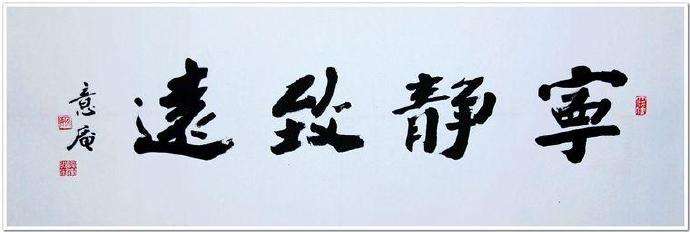 寧靜致遠
意庵